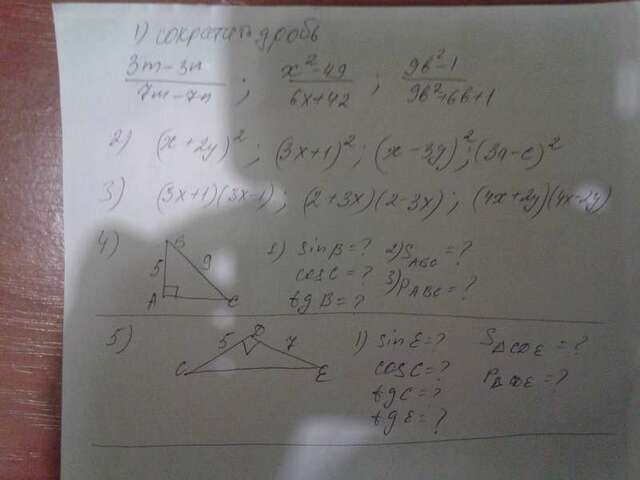 1) сократить дробь
3m-3n/7m-7n ; x²-49/6x+42 ; 9b²-1/9b²+6b+1
2) (x+2y)² ; (3x+1)² ; (x-3y)² ; (3a-c)²
3) (3x+1)(3x-1) ; (2+3x)(2-3x) ; (4x+2y)(4x-2y)
4) B 5 9 A C 1) sin B=? 2) S_ABC=?
cos C=? 3) P_ABC=?
tg B=?
5) C 5 D 7 E 1) sin E=? S_ΔCDE=?
cos C=? P_ΔCDE=?
tg C=?
tg E=?